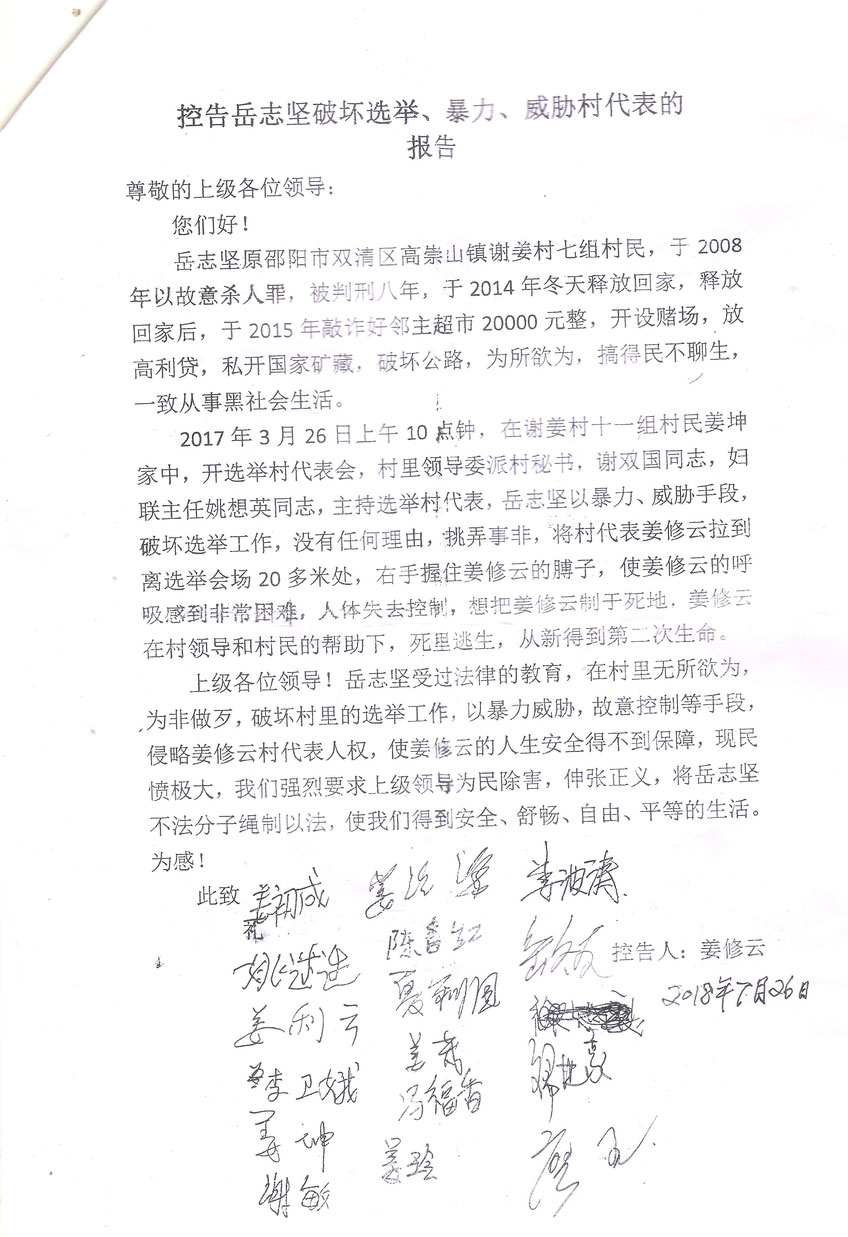 控告岳志坚破坏选举、暴力、威胁村代表的
报告
尊敬的上级各位领导：
您们好！
岳志坚原邵阳市双清区高崇山镇谢姜村七组村民，于 2008
年以故意杀人罪，被判刑八年，于 2014 年冬天释放回家，释放
回家后，于 2015 年敲诈好邻主超市 20000 元整，开设赌场，放
高利贷，私开国家矿藏，破坏公路，为所欲为，搞得民不聊生，
一致从事黑社会生活。
2017 年 3 月 26 日上午 10 点钟，在谢姜村十一组村民姜坤
家中，开选举村代表会，村里领导委派村秘书，谢双国同志，妇
联主任姚想英同志，主持选举村代表，岳志坚以暴力、威胁手段，
破坏选举工作，没有任何理由，挑弄事非，将村代表姜修云拉到
离选举会场 20 多米处，右手握住姜修云的膊子，使姜修云的呼
吸感到非常困难，人体失去控制，想把姜修云制于死地，姜修云
在村领导和村民的帮助下，死里逃生，从新得到第二次生命。
上级各位领导！岳志坚受过法律的教育，在村里无所欲为，
为非做歹，破坏村里的选举工作，以暴力威胁，故意控制等手段，
侵略姜修云村代表人权，使姜修云的人生安全得不到保障，现民
愤极大，我们强烈要求上级领导为民除害，伸张正义，将岳志坚
不法分子绳制以法，使我们得到安全、舒畅、自由、平等的生活。
为感！
此致 姜初成 李波清
礼
控告人：姜修云
2018年7月26日
姜利云 夏利圆
李卫娥 冯福香
姜坤 姜玲
谢敏